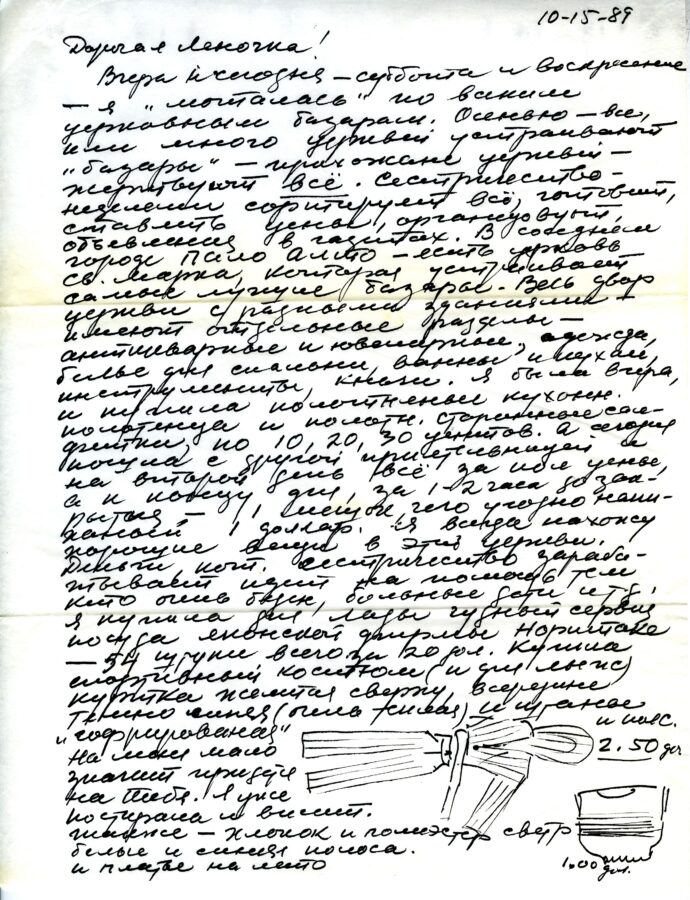 10-15-89
Дорогая Леночка!
Вчера и сегодня – суббота и воскресение
– я "моталась" по всяким
церковным базарам. Осенью – все,
или много церквей устраивают
"базары" – прихожане церквей –
жертвуют всё. Сестричество –
неделями сортирует всё, готовит,
ставить цены, организовуют,
объевления в газетах. В соседнем
городе Пало Алто – есть церковь
св. Марка, которая устраивает
самые лучшие базары. Весь двор
церкви с разными зданиями –
имеют отдельные разделы –
антикварные и ювелирные, одежда,
белье для спальни, ванны и кухни,
инструменты, книги. Я была вчера,
и купила полотняные кухонн.
полотенца и полотн. старинные сал-
фетки, по 10, 20, 30 центов. А сегодня
пошла с другой приятельницей и
на второй день всё за пол цены,
а к концу дня, за 1-2 часа до зак-
рытия – 1 мешок чего угодно напи-
ханый 1 доллар. Я всегда нахожу
хорошие вещи в этой церкви.
Деньги, кот. сестричество зараба-
тывает идет на помощь тем
кто очень беден, больные дети и т.д.
Я купила для Лады чудный сервиз
посуда японской фирмы Норитаке
– 54 штуки всего за 20 дол. Купила
спортивный костюм (и для лыж)
куртка желтая сверху, всередине
темно синяя и штаны
"гофрированая" и пояс.
На меня мало 2.50 дол
значит придется
на Тебя. Я уже
постирала и висит.
также – хлопок и полиэстер светр
белые и синяя полоса. 1.00 дол.
и платье на лето